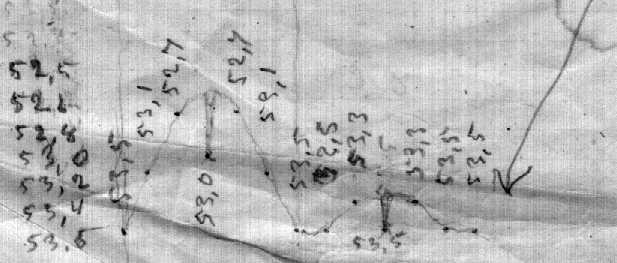 52,5
52,6
52,8
53,0
53,2
53,4
53,6
53,5
53,1
52,7
53,0
52,7
53,1
53,5
53,3
53,5
53,3
53,5
53,5